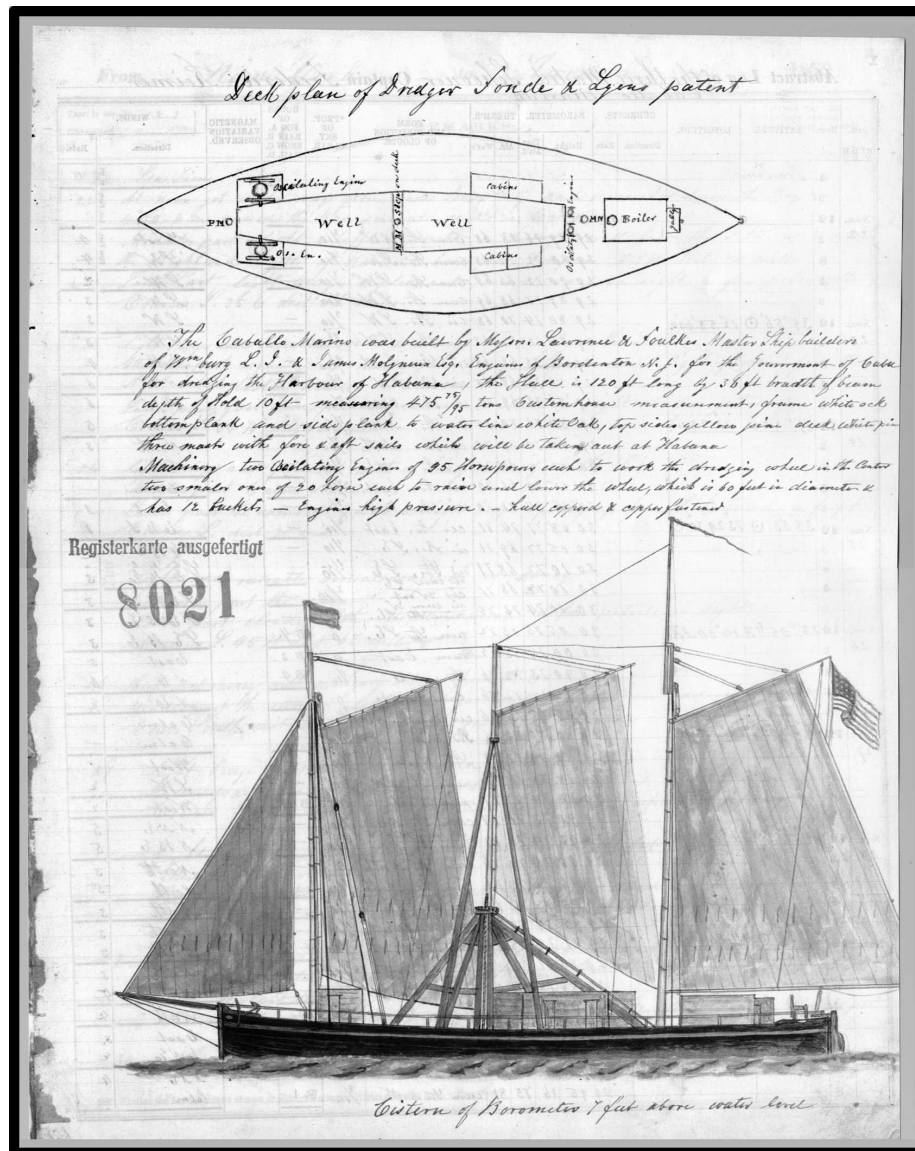 Deck plan of Dredger Fonde & Lyons patent
Oscilating Engine
Cabins
FM
Well
M.M. Step on deck
Well
MM
Boiler
Os. En.
Cabins
The Caballo Marino was built by Messrs. Lawrence & Foulkes Master Shipbuilders
of Wmburg L. I. & James Esq. Engines of Bordenton N. J. for the Government of Cuba
for dredging the Harbour of Habana, the Hull is 120 ft long by 36 ft breadth of beam
depth of Hold 10 ft measuring 475 75/95 tons Customhouse measurement, frame white oak
bottom plank and side plank to water line white Oak, top sides yellow pine deck white pine
three masts with fore & aft sails which will be taken out at Habana
Machinery two Oscilating Engines of 95 Horsepower each to work the dredging wheel in the Center
two smaler ones of 20 horse each to raise and lower the wheel, which is 60 feet in diameter &
has 12 buckets — Engines high pressure. — hull copperd & copper fastened
Registerkarte ausgefertigt
8021
Cistern of Barometer 7 feet above water level